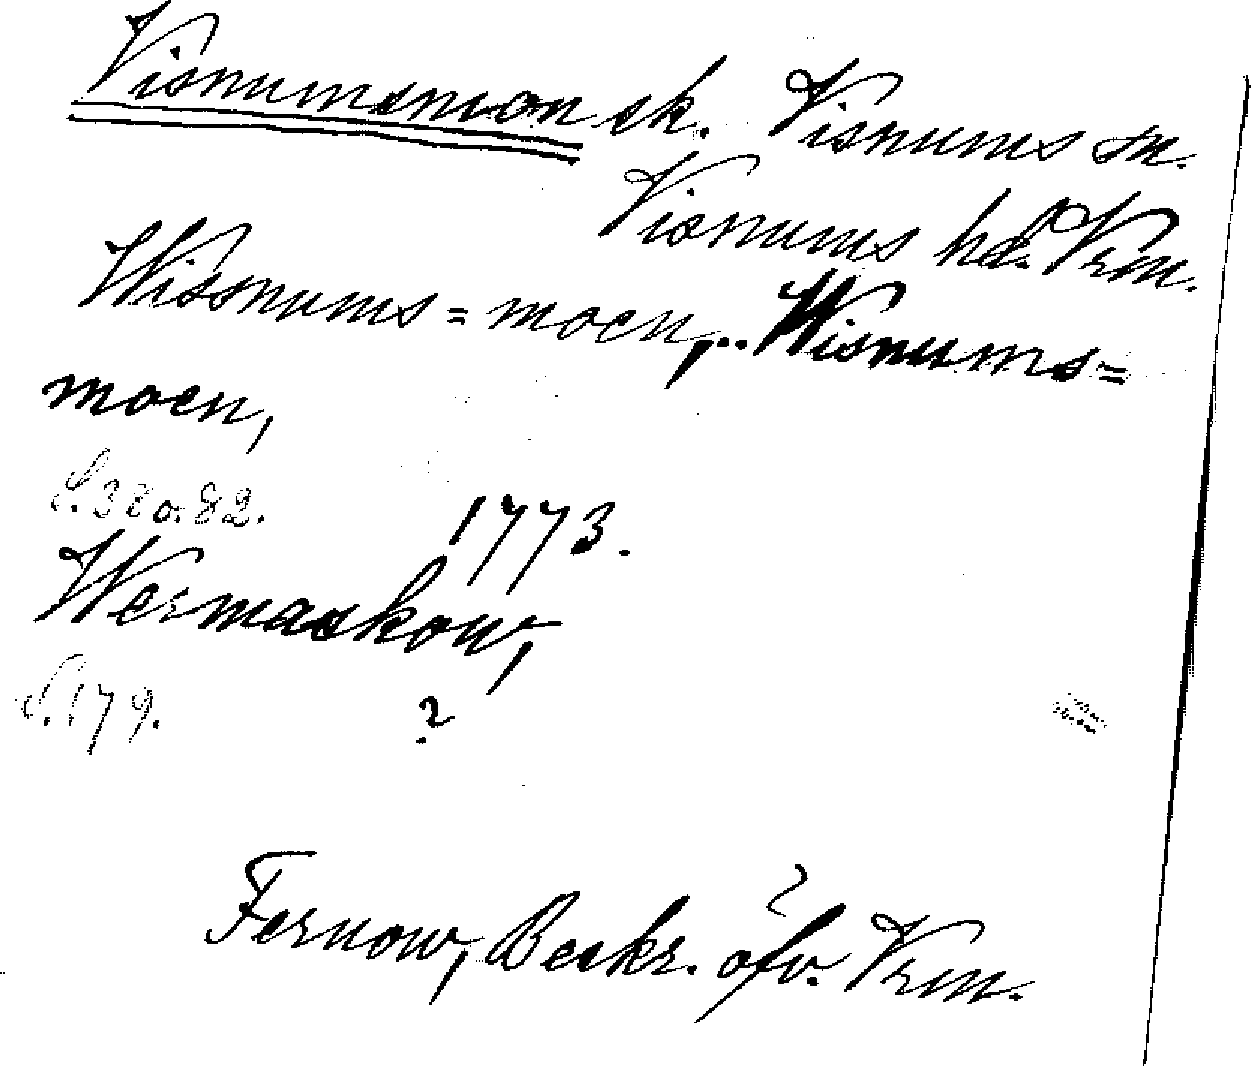 Visnumsmon sk. Visnums sn.
Visnums hd. Vrm.
Wissnums=moen, .. Wisnums=
moen,
S. 38 o. 82.
1773.
Wermaskow,
S. 179.
?
Fernow, Beskr. öfv. Vrm.